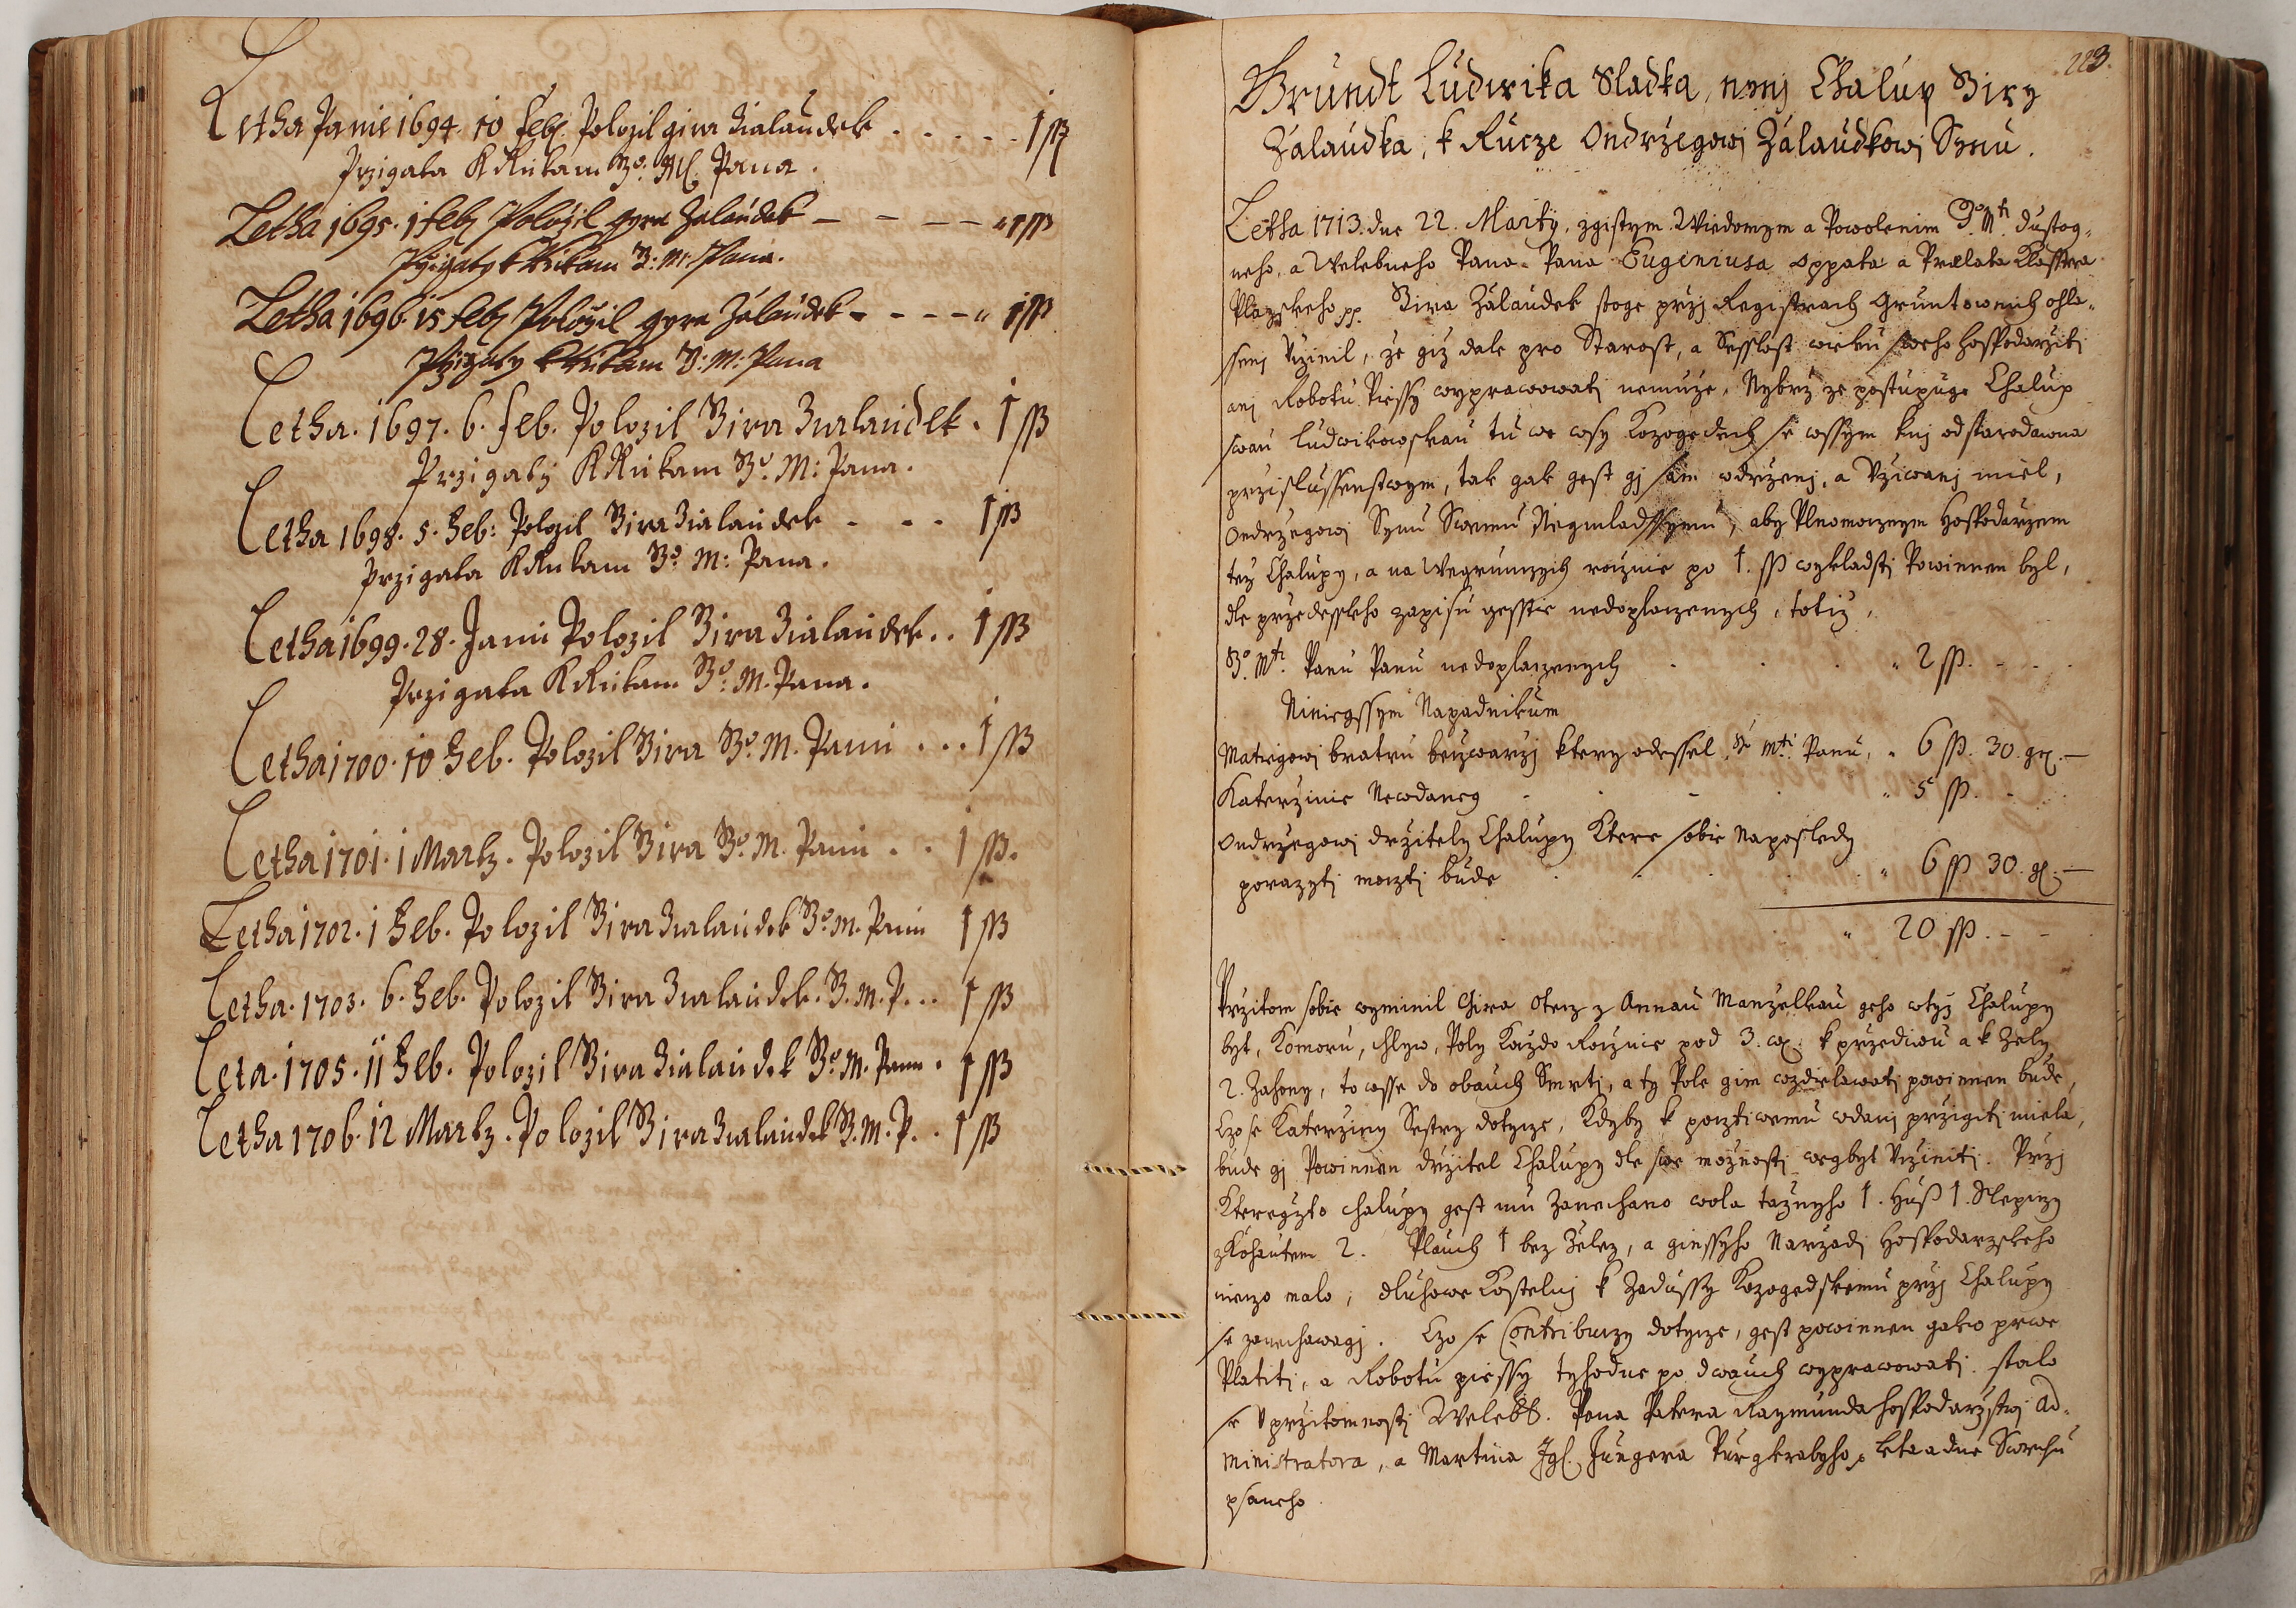 Letha Panie 1694. 10 Feb. Polozil gira Zialaudek . . . . . 1 ss
Przigata K Rukam Jo. Ml. Pana.
Letha 1695. 1 Feb Položil gyra Zalaudek – – – – 1 ss
Przigaty k Rukam J: M: Pana.
Letha 1696. 15 Feb Položil gyra Zalaudek – – – – 1 ss
Przigaty k Rukam J: M: Pana
Letha. 1697. 6. Feb. Polozil Jira Zialaudek. 1 ss
Przigaty K Rukam Jo. M: Pana.
Letha 1698. 5. Feb: Polozil Jira Zialaudek . . . 1 ss
Przigata K Rukam Jo. M: Pana.
Letha 1699. 28. Janu Polozil Jira Zialaudek . . 1 ss
Przigata K Rukam Jo. M. Pana.
Letha 1700. 10 Feb. Polozil Jira Jo. M. Panu . . . 1 ss
Letha 1701. 1 Martz. Polozil Jira Jo. M. Panu . . 1 ss.
Letha 1702. 1 Feb. Polozil Jira Zialaudek Jo. M. Panu 1 ss
Letha. 1703. 6. Feb. Polozil Jira Zialaudek. J. M. P. . . 1 ss
Leta. 1705. 11 Feb. Polozil Jira Zialaudek Jo. M. Panu . 1 ss
Letha 1706. 12 Martz. Polozil Jira Zialaudek J. M. P. . 1 ss
223.
Grundt Ludwika Sladka, nynj Chalup Jiry
Zalaudka, k Rucze Ondrzegowj Zalaudkowj Synu.
Letha 1713. dne 22. Marty, zgistym Wiedomym a Powolenim Jo. Mti. dustog-
neho, a Welebneho Pana Pana Eugeniusa Oppata a Prælata Klasstera
Plaskeho pp. Jira Zalaudek stoge przj Registrach Gruntownich ohla-
ssenj Uczinil, ze giz dale pro Starost, a Sesslost wieku sweho hospodarziti
anj Robotu Piessy wypracowati nemuze, Nybrz ze postupuge Chalup
swau Ludwikowskau tu we wsy Kozogedech se wssym knj odstarodawna
przislussenstwym, tak gak gest gj sam wdrzenj, a Uziwanj miel,
Ondrzegowj Synu Swemu Neymladssymu, aby Plnomocznym Hospodarzem
tey Chalupy, a na Wegrunczych rocznie po 1. ss wykladati Powinnen byl,
dle przedesleho zapisu gesstie nedoplaczenych, totiz,
Jo. Mti. Panu Panu nedoplaczenych . . . 2 ss. – .
Niniegssym Napadnikum
Matiegowj bratru beczwarzj ktery odessel, Jo Mti. Panu, 6 ss. 30. gr. –
Katerzinie Newdaneg . . . 5 ss. –
Ondrzegowj drzitely Chalupy Ktere sobie Naposledy
porazyti moczti bude . . . . 6 ss 30. gr. –
20 ss. – –
Przitom sobie wyminil Gira Otecz z Annau Manzelkau geho wtyz Chalupy
byt, Komoru, chlyw, Poly Kazdo Rocznie pod 3. k przediwu a k Zely
2. Zahony, to wsse do obauch Smrti, a ty Pole gim wzdielawati powinnen bude,
Czo se Katerziny Sestry dotycze, Kdyby k pocztiwemu wdanj przigiti miela,
bude gj Powinnen drzitel Chalupy dle swe moznosti wegbyt Ucziniti. Przj
Kteregzto chalupy gest mu zanechano wola tazneho 1. Huss 1. Slepiczy
z Kohautem 2. Plauch 1 bez Zelez, a ginssyho Narzadj Hospodarzskeho
nieczo malo; dluhowe Kostelnj k Zadussy Kozogedskemu przj Chalupy
se zanechawagj. Czo se Contribuczy dotycze, gest powinnen gako prwe
Platiti, a Robotu piessy tyhodne po dwauch wypracowati. stalo
se v przitomnosti Weleb. Pana Patera Raymunda hospodarzstwj Ad-
ministratora, a Martina Igl. Jungera Purgkrabyho, leta a dne Swrchu
psaneho.